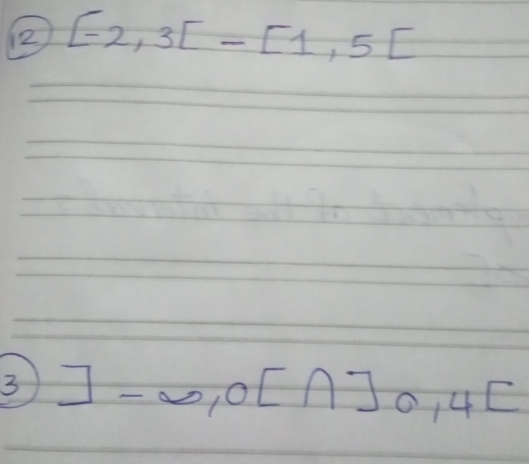 12 [-2, 3[ - [1, 5[
3 ]-∞, 0[ ∩ ]0, 4[